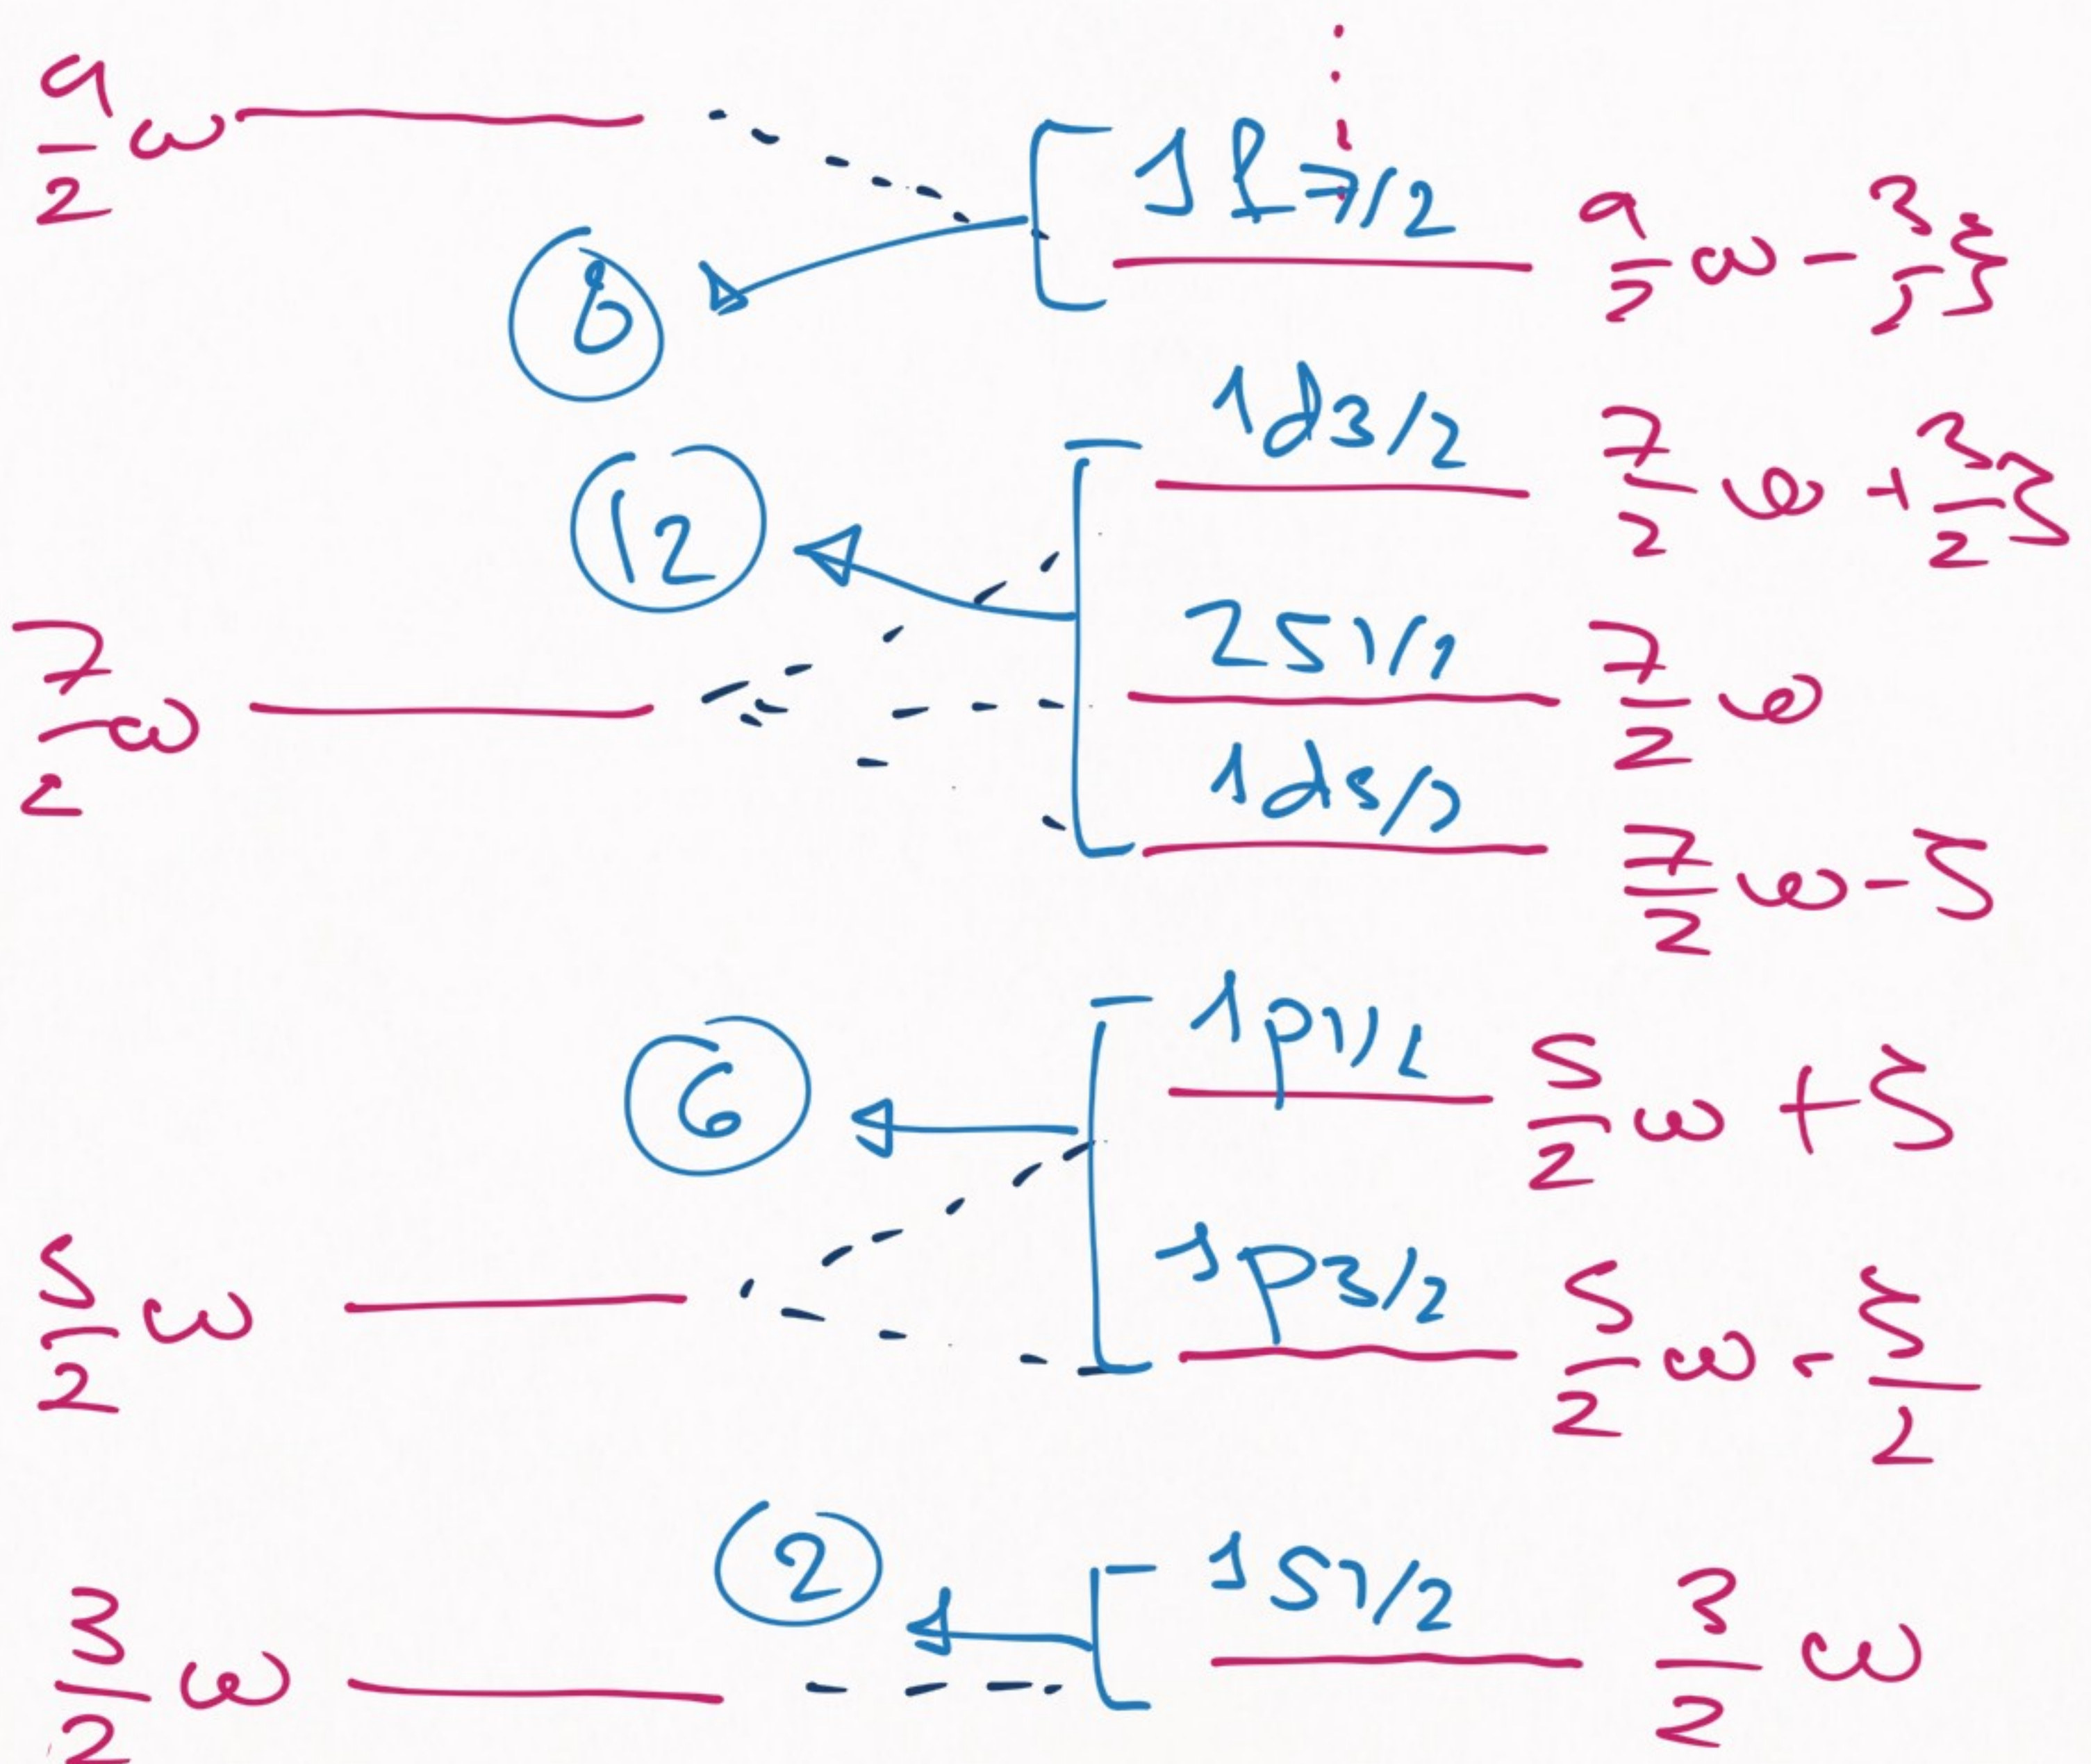 9/2 ω
1f7/2 9/2 ω - 3/2 ξ
8
1d3/2 7/2 ω + 3/2 ξ
12
2s1/2 7/2 ω
7/2 ω
1d5/2 7/2 ω - ξ
1p1/2 5/2 ω + ξ
6
5/2 ω
1p3/2 5/2 ω - ξ/2
2
1s1/2 3/2 ω
3/2 ω